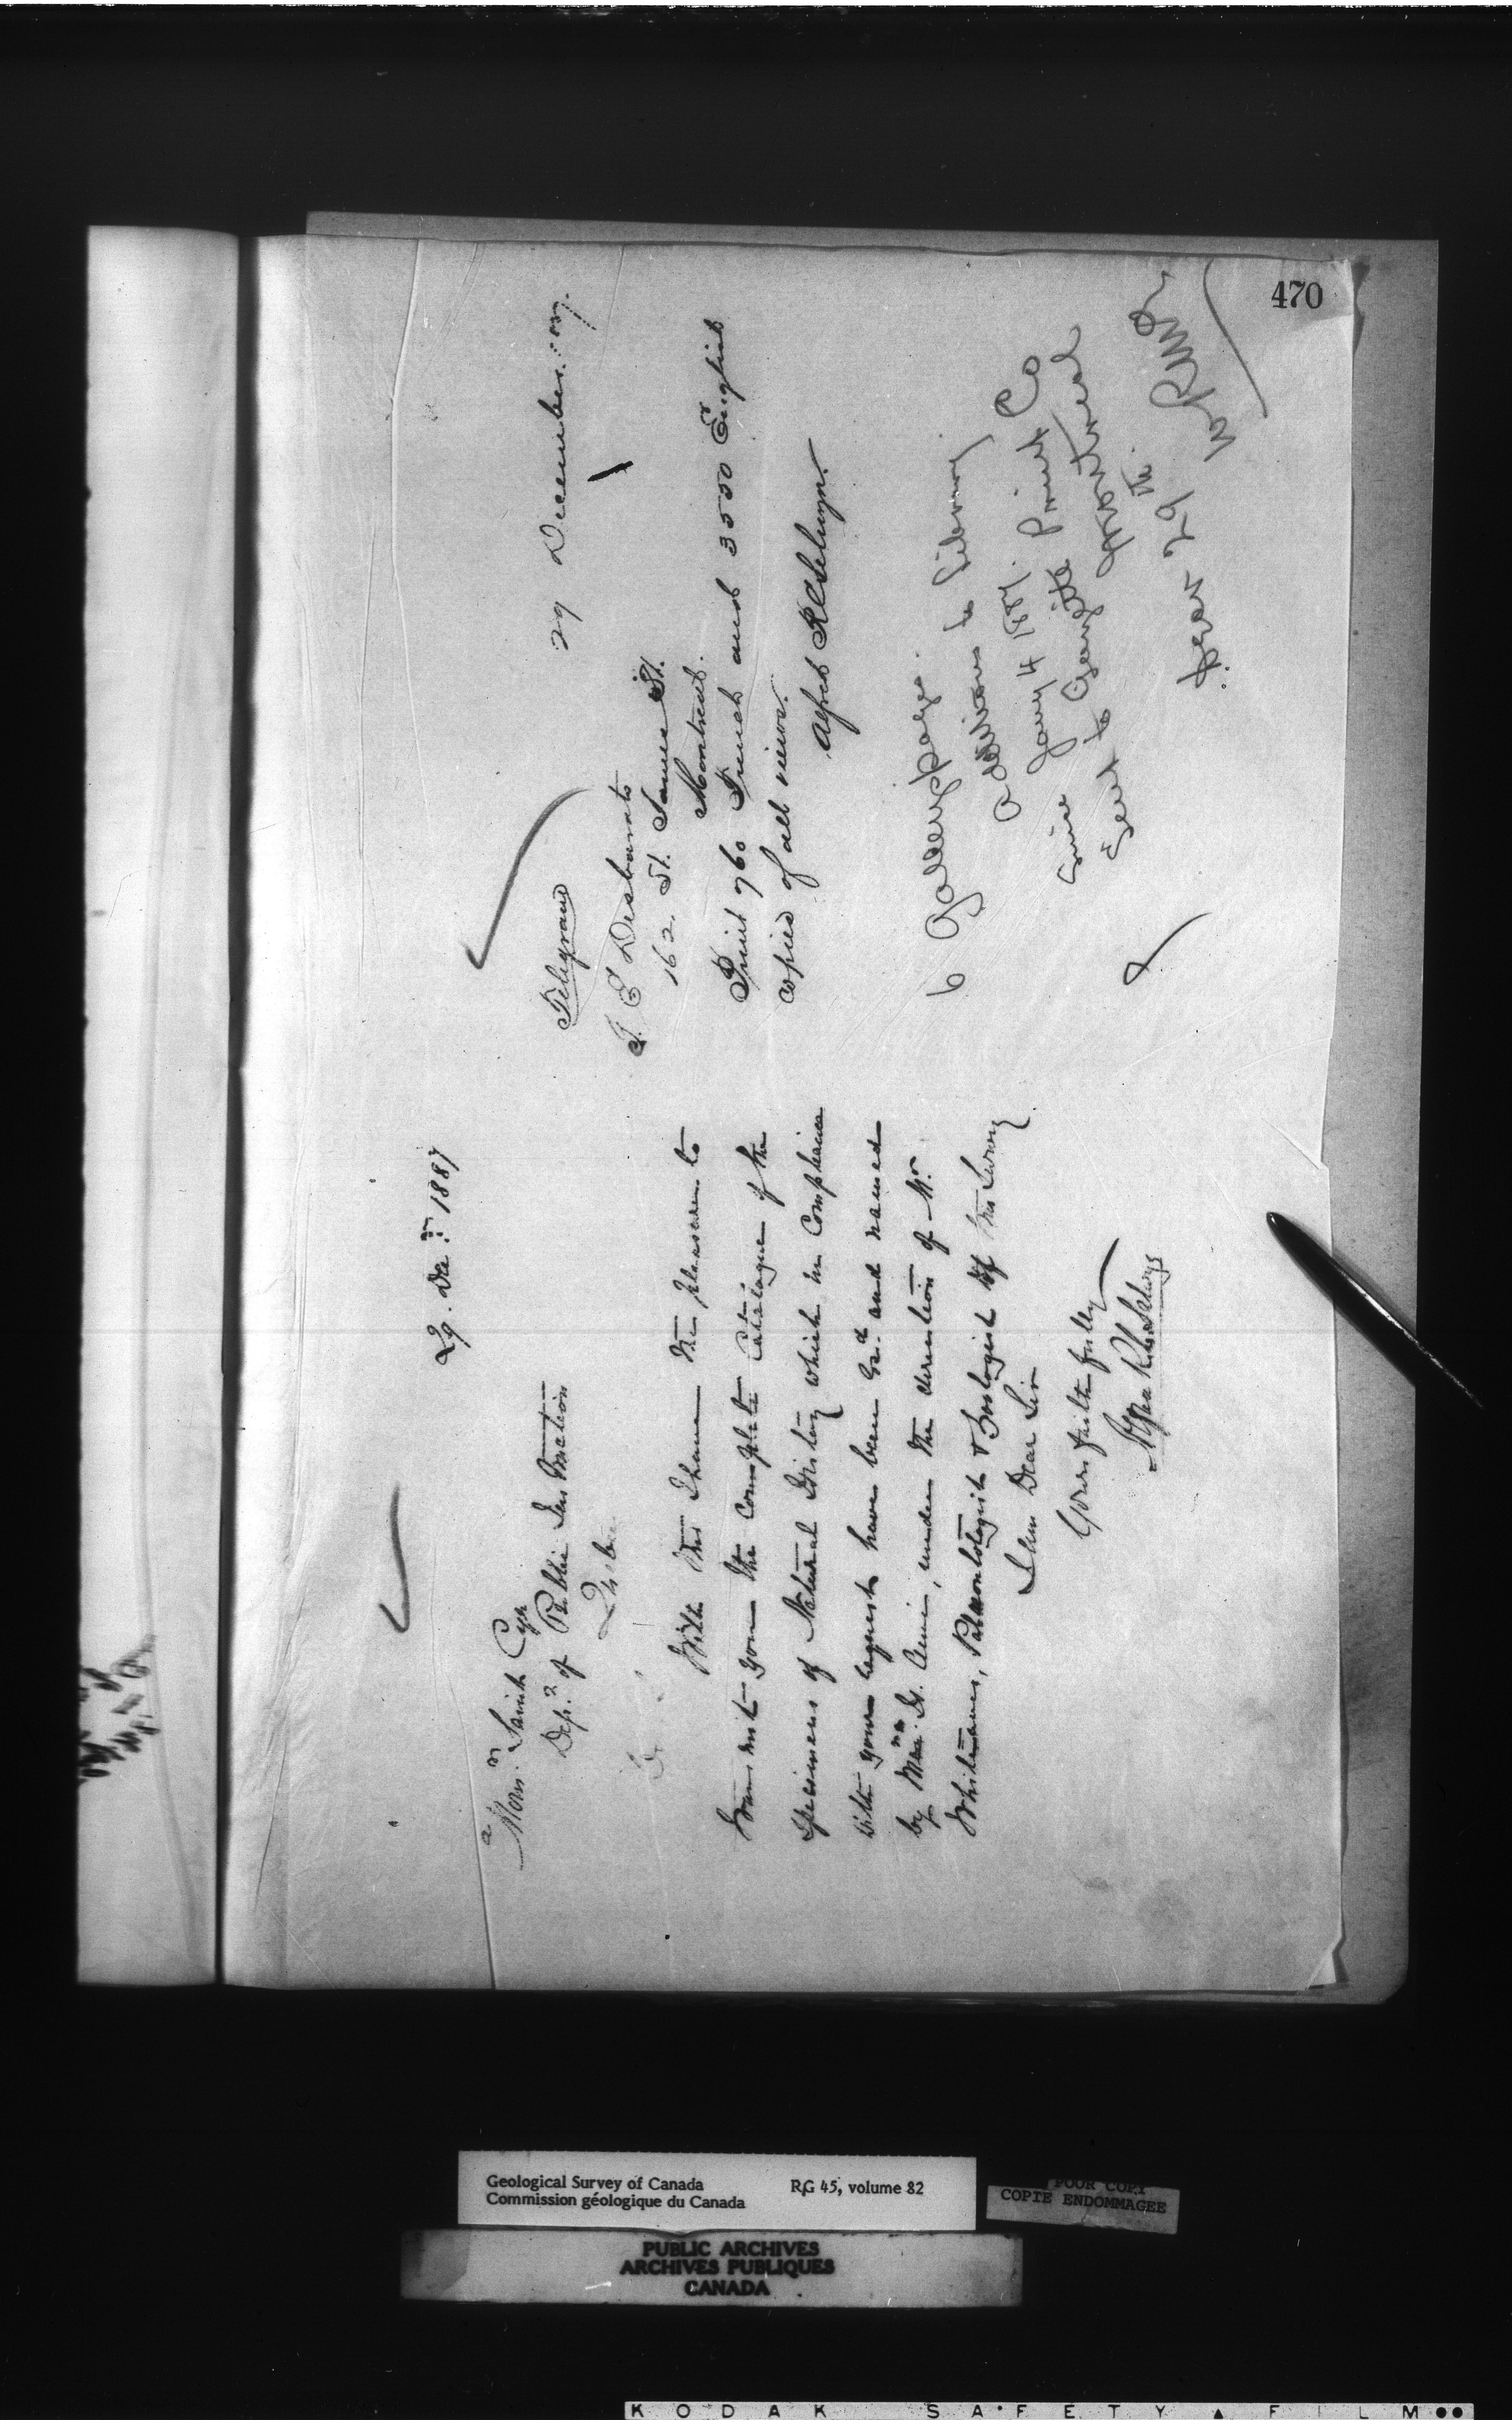 470
29. Dec.r 1887
a
Monsr. Saint Cyr
Dept. of Public Instruction
Quebec
With this I have the pleasure to
transmit you the complete catalogue of the
specimens of Natural History which in compliance
with your request have been and named
by Mr. H. Ami, under the direction of Mr.
Whiteaves, Palaeontologist & Zoologist of this Survey
I am Dear Sir
Yours faithfully
Alfred R. C. Selwyn
29 December
Telegram
G E Desbarats
162. St. James St.
Montreal.
Print 760 French and 3500 English
copies of all views.
Alfred R C Selwyn.
6 Galley pages.
Additions to Library
Since Jany 4 1887.
Sent to Gazette Print Co
Montreal
29th
Geological Survey of Canada RG 45, volume 82
Commission géologique du Canada
POOR COPY
COPIE ENDOMMAGEE
PUBLIC ARCHIVES
ARCHIVES PUBLIQUES
CANADA
KODAK SAFETY FILM